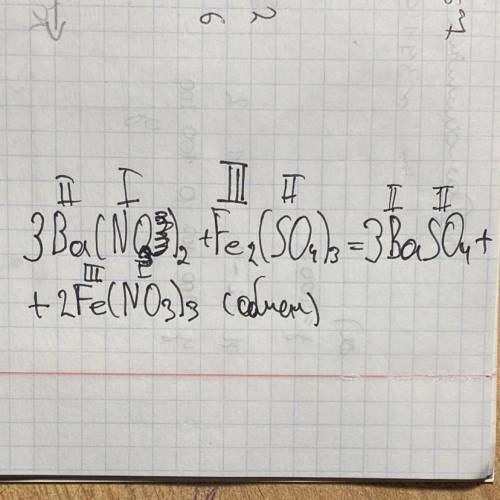 II I III II II II
3Ba(NO₃)₂ + Fe₂(SO₄)₃ = 3BaSO₄ +
III I
+ 2Fe(NO₃)₃ (обмен)